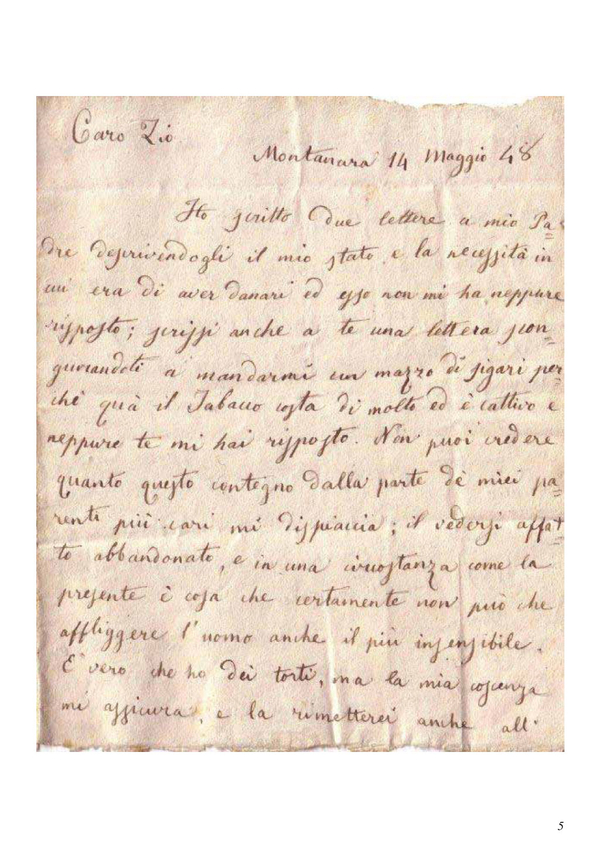 Caro Zio
Montanara 14 Maggio 48
Ho scritto due lettere a mio Pa=
dre descrivendogli il mio stato, e la necessità in
cui era di aver danari ed esso non mi ha neppure
risposto; scrissi anche a te una lettera scon=
giurandoti a mandarmi un mazzo di sigari per=
chè quà il Tabacco costa di molto ed è cattivo e
neppure te mi hai risposto. Non puoi credere
quanto questo contegno dalla parte de miei pa=
renti più cari mi dispiaccia; il vedersi affat=
to abbandonato, e in una circostanza come la
presente è cosa che certamente non può che
affliggere l'uomo anche il più insensibile.
E' vero che ho dei torti, ma la mia coscenza
mi assicura, e la rimetterei anche all'
5